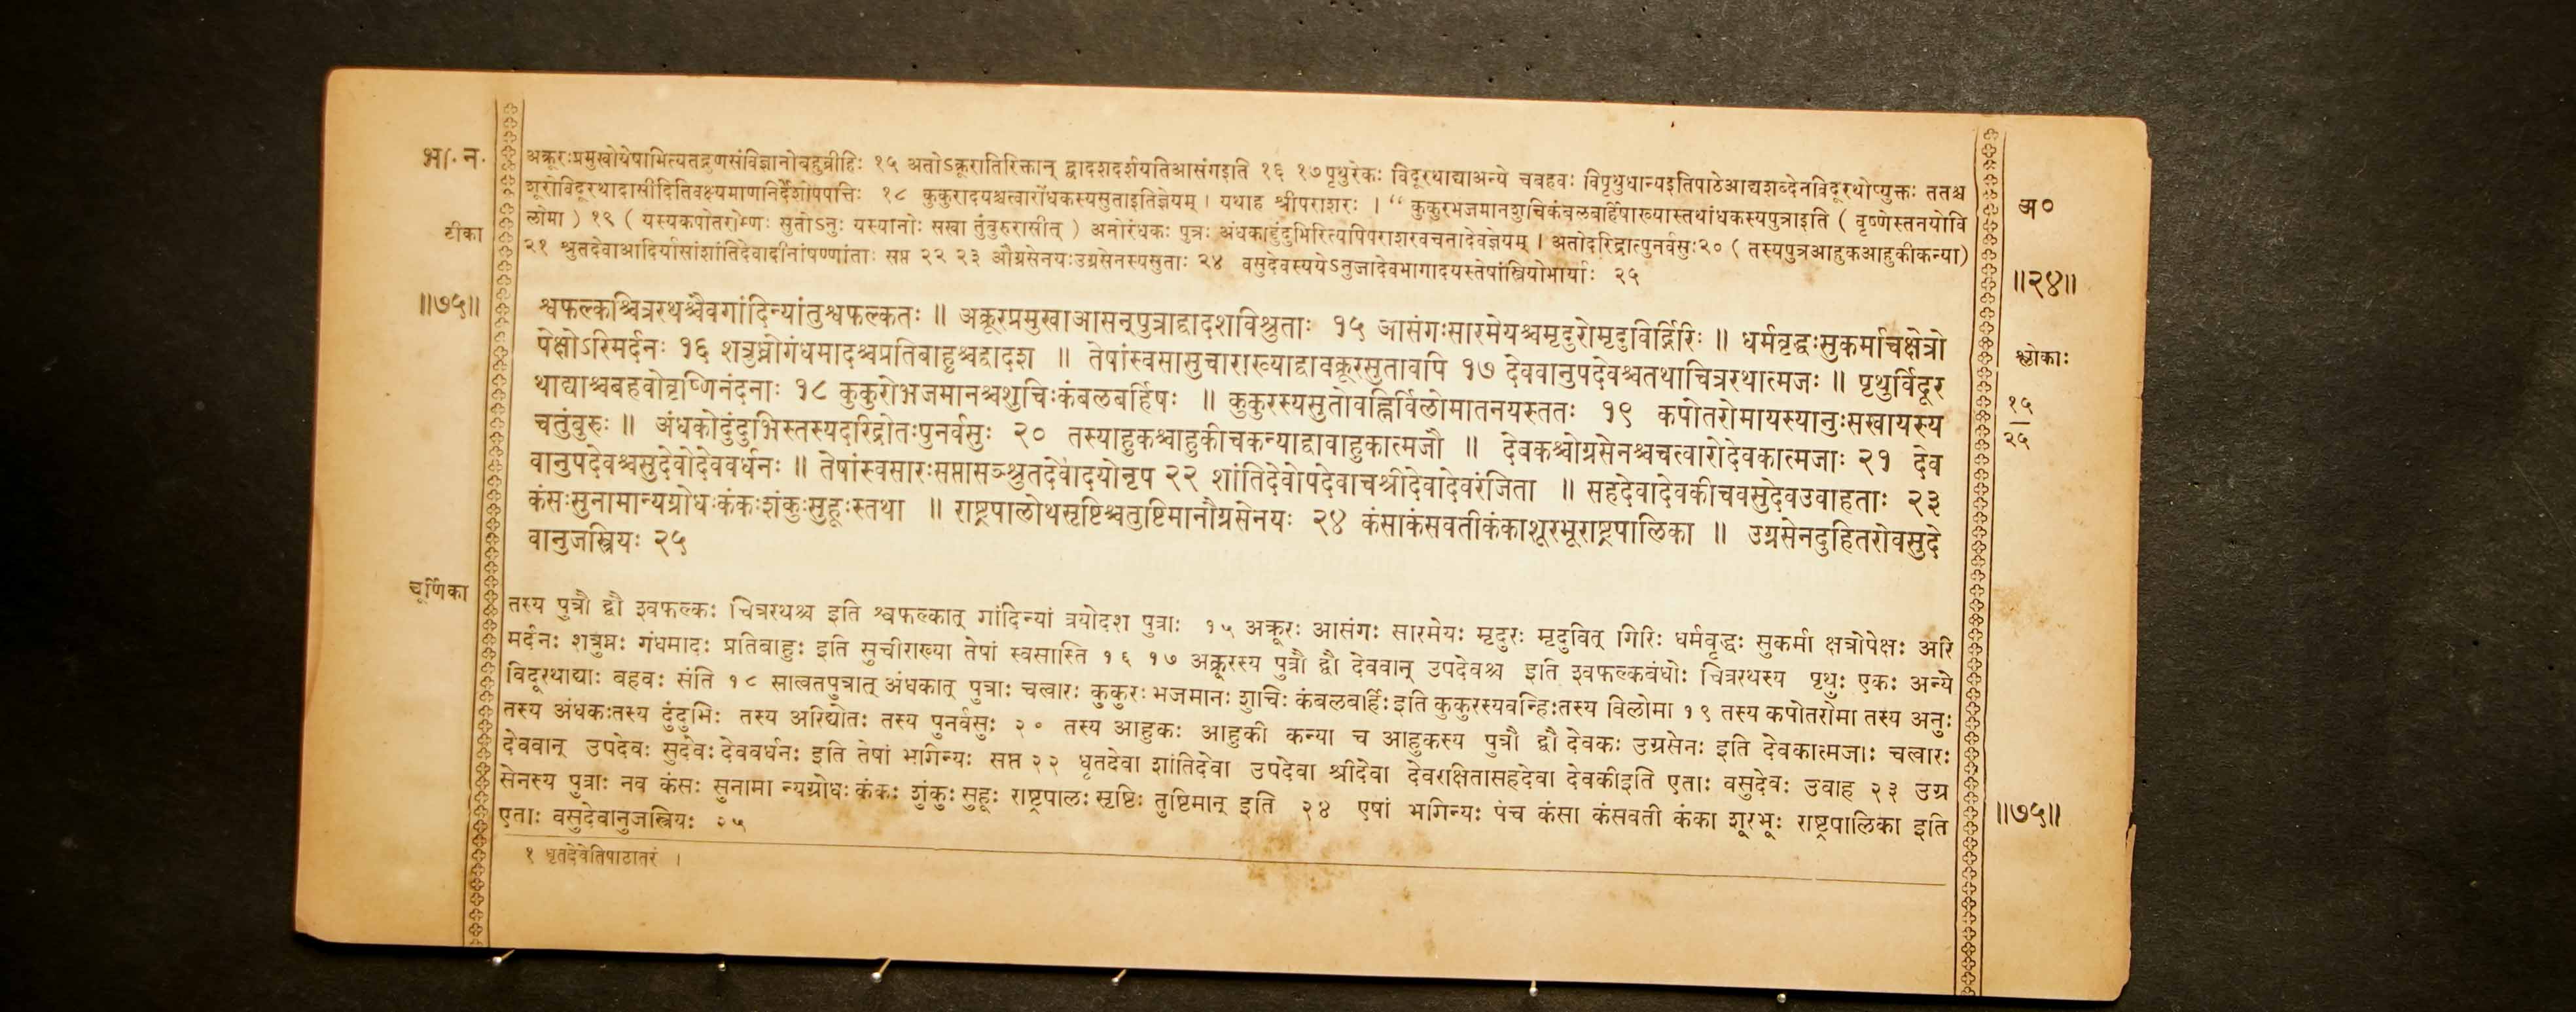 भा. न.
अक्रूरःप्रमुखोयेषामित्यतद्गुणसंविज्ञानोबहुव्रीहिः १५ अतोऽक्रूरातिरिक्तान् द्वादशदर्शयतिआसंगइति १६ १७ पृथुरेकः विदूरथाद्याअन्ये चबहवः विपृथुधान्यइतिपाठेआद्यशब्देनविदूरथोप्युक्तः ततश्च
शूरोविदूरथादासीदितिवक्ष्यमाणनिर्देशोपपत्तिः १८ कुकुरादयश्चत्वारोंधकस्यसुताइतिज्ञेयम् । यथाह श्रीपराशरः । “ कुकुरभजमानशुचिकंबलबर्हिषाख्यास्तथांधकस्यपुत्राइति ( वृष्णेस्तनयोवि
टीका
लोमा ) १९ ( यस्यकपोतरोम्णः सुतोऽनुः यस्यानोः सखा तुंवुरुरासीत् ) अनोरंधकः पुत्रः अंधकाद्दुंदुभिरित्यपिपराशरवचनादेवज्ञेयम् । अतोदरिद्रात्पुनर्वसुः२० ( तस्यपुत्रआहुकआहुकीकन्या)
२१ श्रुतदेवाआदिर्यासांशांतिदेवादीनांषण्णांताः सप्त २२ २३ औग्रसेनयःउग्रसेनस्यसुताः २४ वसुदेवस्ययेऽनुजादेवभागादयस्तेषांस्त्रियोभार्याः २५
अ०
॥२४॥
॥७५॥
श्वफल्कश्चित्ररथश्चैवगांदिन्यांतुश्वफल्कतः ॥ अक्रूरप्रमुखाआसन्पुत्राद्वादशविश्रुताः १५ आसंगःसारमेयश्चमृदुरोमृदुविर्द्गिरिः ॥ धर्मवृद्धःसुकर्माचक्षेत्रो
पेक्षोऽरिमर्दनः १६ शत्रुघ्नोगंधमादश्चप्रतिबाहुश्चद्वादश ॥ तेषांस्वसासुचाराख्याद्वावक्रूरसुतावपि १७ देववानुपदेवश्चतथाचित्ररथात्मजः ॥ पृथुर्विदूर
थाद्याश्चबहवोवृष्णिनंदनाः १८ कुकुरोभजमानश्चशुचिःकंबलबर्हिषः ॥ कुकुरस्यसुतोवह्निर्विलोमातनयस्ततः १९ कपोतरोमायस्यानुःसखायस्य
चतुंवुरुः ॥ अंधकोदुंदुभिस्तस्यदरिद्रोतःपुनर्वसुः २० तस्याहुकश्चाहुकीचकन्याद्वावाहुकात्मजौ ॥ देवकश्चोग्रसेनश्चचत्वारोदेवकात्मजाः २१ देव
वानुपदेवश्चसुदेवोदेववर्धनः ॥ तेषांस्वसारःसप्तासञ्श्रुतदेवादयोनृप २२ शांतिदेवोपदेवाचश्रीदेवादेवरंजिता ॥ सहदेवादेवकीचवसुदेवउवाहताः २३
कंसःसुनामान्यग्रोधःकंकःशंकुःसुहूःस्तथा ॥ राष्ट्रपालोथसृष्टिश्चतुष्टिमानौग्रसेनयः २४ कंसाकंसवतीकंकाशूरभूराष्ट्रपालिका ॥ उग्रसेनदुहितरोवसुदे
वानुजस्त्रियः २५
श्लोकाः
१५
२५
चूर्णिका
तस्य पुत्रौ द्वौ श्वफल्कः चित्ररथश्च इति श्वफल्कात् गांदिन्यां त्रयोदश पुत्राः १५ अक्रूरः आसंगः सारमेयः मृदुरः मृदुवित् गिरिः धर्मवृद्धः सुकर्मा क्षत्रोपेक्षः अरि
मर्दनः शत्रुघ्नः गंधमादः प्रतिबाहुः इति सुचीराख्या तेषां स्वसास्ति १६ १७ अक्रूरस्य पुत्रौ द्वौ देववान् उपदेवश्च इति श्वफल्कबंधोः चित्ररथस्य पृथुः एकः अन्ये
विदूरथाद्याः बहवः संति १८ सात्वतपुत्रात् अंधकात् पुत्राः चत्वारः कुकुरः भजमानः शुचिः कंबलबर्हिः इति कुकुरस्यवन्हिःतस्य विलोमा १९ तस्य कपोतरोमा तस्य अनुः
तस्य अंधकःतस्य दुंदुभिः तस्य अरिद्योतः तस्य पुनर्वसुः २० तस्य आहुकः आहुकी कन्या च आहुकस्य पुत्रौ द्वौ देवकः उग्रसेनः इति देवकात्मजाः चत्वारः
देववान् उपदेवः सुदेवः देववर्धनः इति तेषां भगिन्यः सप्त २२ धृतदेवा शांतिदेवा उपदेवा श्रीदेवा देवरक्षितासहदेवा देवकीइति एताः वसुदेवः उवाह २३ उग्र
सेनस्य पुत्राः नव कंसः सुनामा न्यग्रोधः कंकः शंकुः सुहूः राष्ट्रपालः सृष्टिः तुष्टिमान् इति २४ एषां भगिन्यः पंच कंसा कंसवती कंका शूरभूः राष्ट्रपालिका इति
एताः वसुदेवानुजस्त्रियः २५
॥७५॥
१ धृतदेवेतिपाठातरं ।